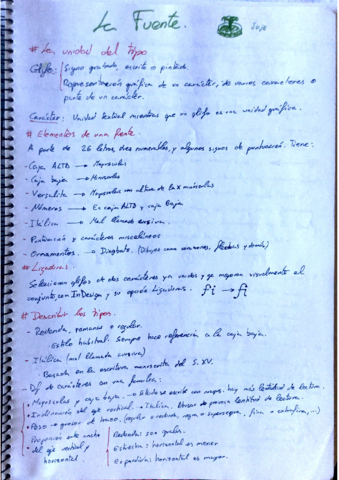 La Fuente.
# La unidad del tipo
Glifo: Signo grabado, escrito o pintado.
Representación gráfica de un carácter, de varios caracteres o
parte de un carácter.
Carácter: Unidad textual mientras que un glifo es una unidad gráfica.
# Elementos de una fuente.
A parte de 26 letras, diez numerales, y algunos signos de puntuación. Tiene:
- Caja ALTA → Mayúsculas
- Caja baja → Minúsculas
- Versalita → Mayúsculas con altura de la x minúscula
- Números → En caja ALTA y caja Baja
- Itálica → Mal llamada cursiva.
- Puntuación y carácteres misceláneos
- Ornamentos. → Dingbats. (Dibujos como y demás)
# Ligaduras.
Soluciona glifos de dos carácteres ya unidos y se mejoran visualmente al
conjunto, con InDesign y su opción Ligaduras. fi → fi
# Describir los tipos.
- Redonda, romana o regular.
Estilo habitual. Siempre hace referencia a la caja baja.
- Itálica (mal llamada cursiva)
Basada en la escritura manuscrita del S. XV.
- Dif de carácteres en una familia:
• Mayúsculas y caja baja. → hay más lentitud de lectura.
• Inclinación del eje vertical. → itálica. lentitud de lectura.
• Peso → grosor de trazo. (regular o redonda, negra o supernegra, fina o extrafina,...)
• Proporción entre ancho
del eje vertical y
horizontal
Redonda: son iguales.
Estrecha: horizontal es menor
Expandida: horizontal es mayor.